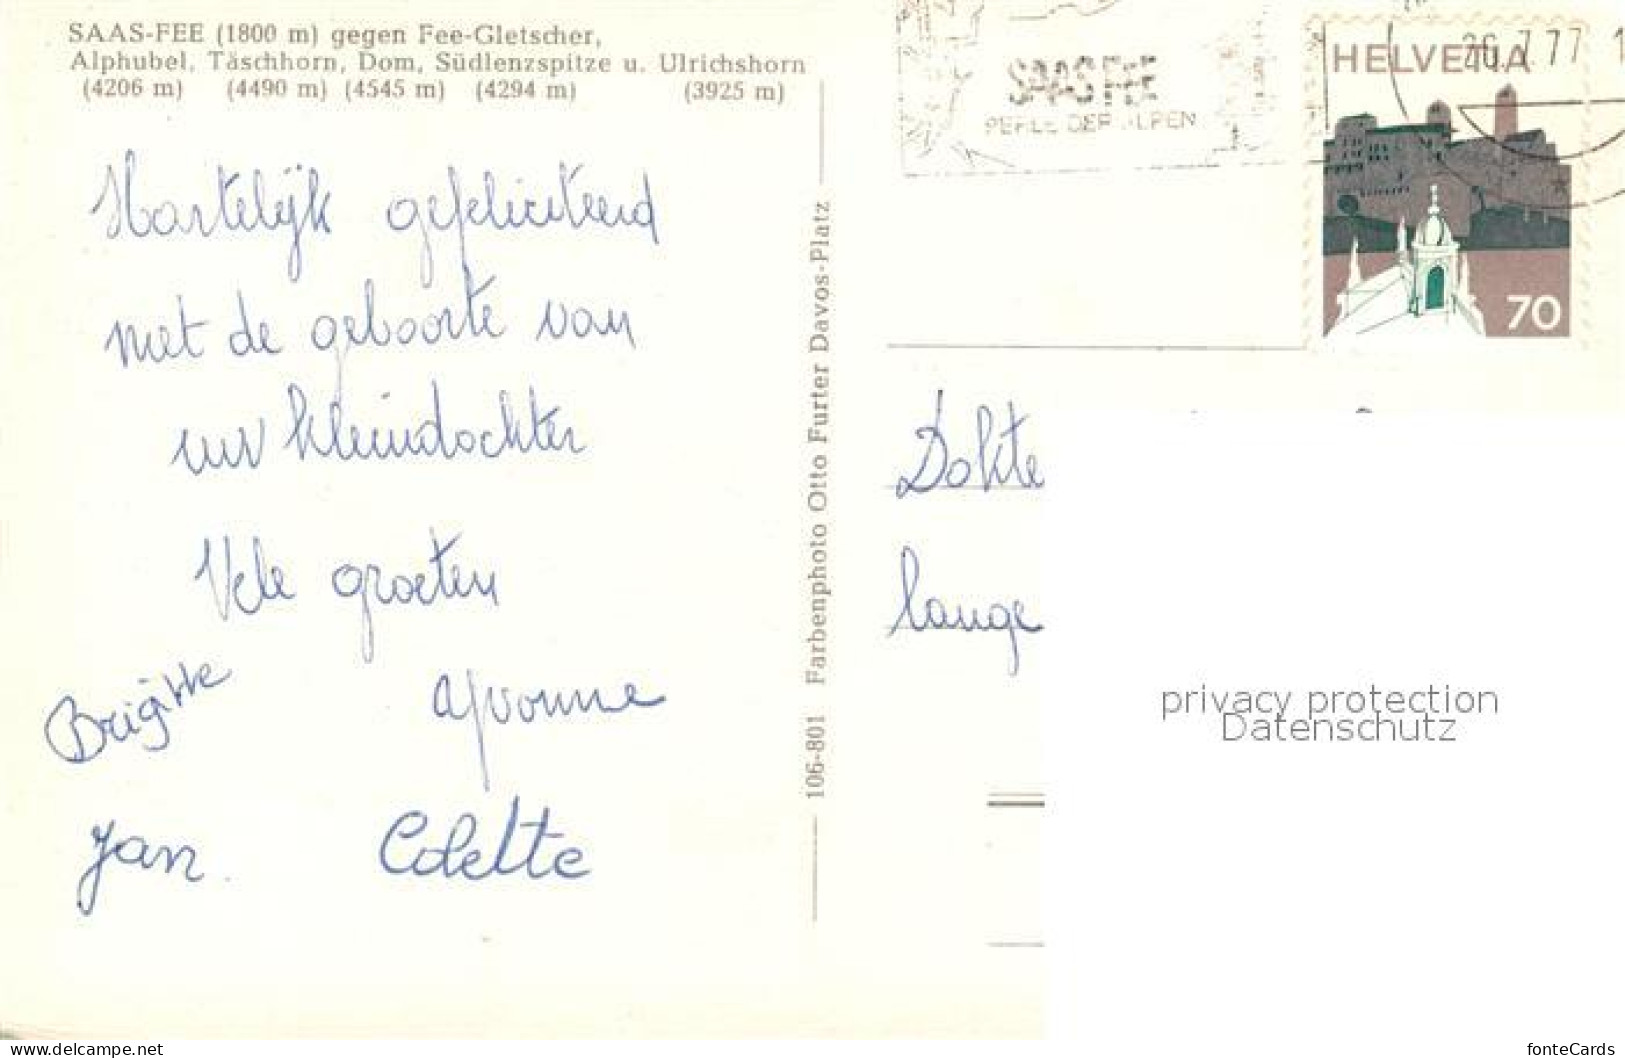 SAAS-FEE (1800 m) gegen Fee-Gletscher,
Alphubel, Täschhorn, Dom, Südlenzspitze u. Ulrichshorn
(4206 m) (4490 m) (4545 m) (4294 m) (3925 m)
Hartelijk gefeliciteerd
met de geboorte van
uw kleindochter
Vele groeten
Brigitte
Yvonne
Jan.
Colette
106-801 Farbenphoto Otto Furter Davos-Platz
SAAS FEE
PERLE DER ALPEN
26.7.77
HELVETIA
70
Dokte
lange
privacy protection
Datenschutz
https://www.delcampe.net
fonteCards